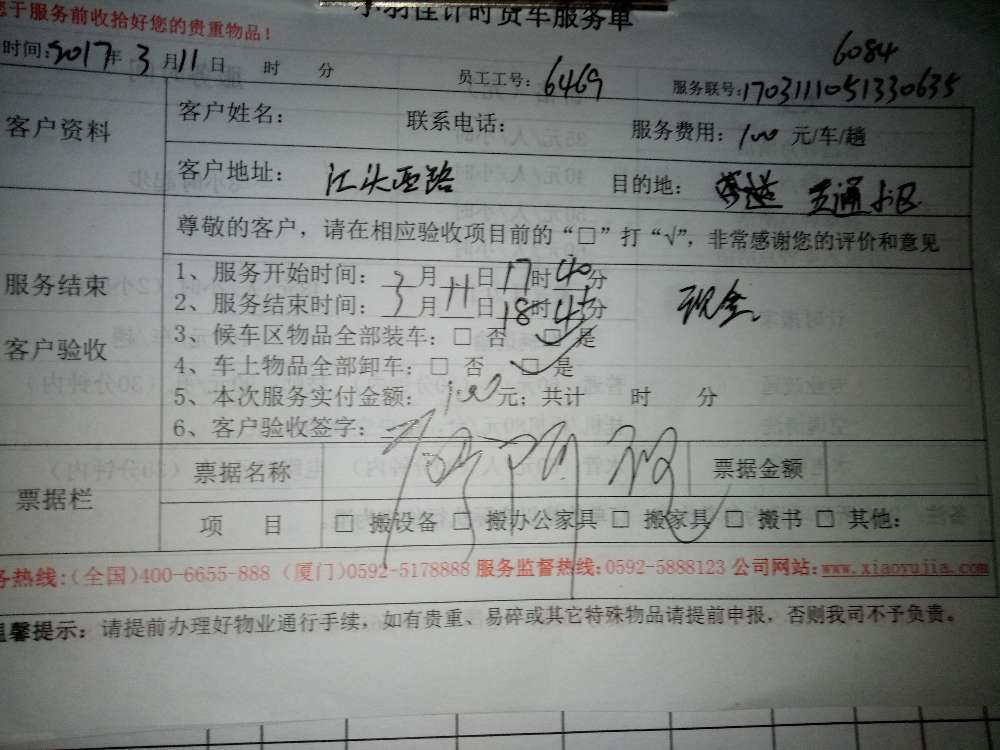 您于服务前收拾好您的贵重物品！
小羽佳计时货车服务单
6084
时间：2017年 3 月 11 日 时 分 员工工号：6469 服务联号：1703111051330635
客户资料
客户姓名： 联系电话： 服务费用：100 元/车/趟
客户地址： 江头西路 目的地： 小区
尊敬的客户，请在相应验收项目前的“□”打“√”，非常感谢您的评价和意见
服务结束
客户验收
1、服务开始时间：3 月 11 日 17 时 40 分
2、服务结束时间：3 月 11 日 18 时 45 分
现金
3、候车区物品全部装车：□ 否 ☑ 是
4、车上物品全部卸车：□ 否 ☑ 是
5、本次服务实付金额：100 元；共计 时 分
6、客户验收签字：
票据栏
票据名称 票据金额
项 目 □ 搬设备 □ 搬办公家具 □ 搬家具 □ 搬书 □ 其他：
务热线：(全国)400-6655-888 (厦门)0592-5178888 服务监督热线：0592-5888123 公司网站：www.xiaoyujia.com
温馨提示：请提前办理好物业通行手续，如有贵重、易碎或其它特殊物品请提前申报，否则我司不予负责。